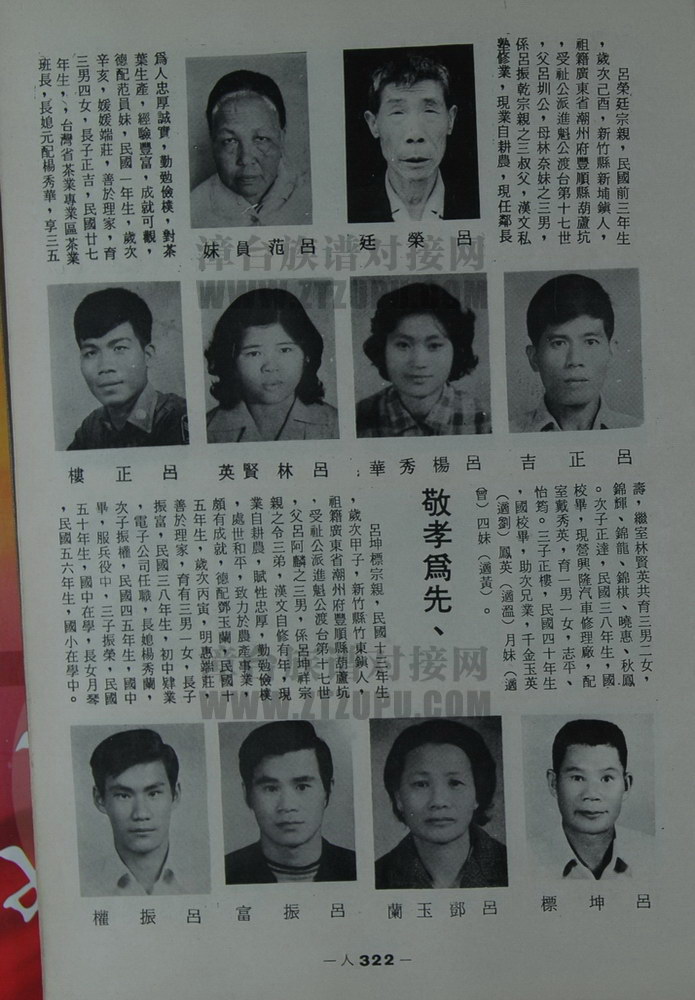 呂榮廷宗親，民國前三年生
，歲次己酉，新竹縣新埔鎮人，
祖籍廣東省潮州府豐順縣葫蘆坑
，受祉公派進魁公渡台第十七世
，父呂圳公，母林奈妹之三男，
係呂振乾宗親之三叔父，漢文私
塾修業，現業自耕農，現任鄰長
為人忠厚誠實，勤勉儉樸，對茶
葉生產，經驗豐富，成就可觀，
德配范員妹，民國一年生，歲次
辛亥，媛媛端莊，善於理家，育
三男四女，長子正吉，民國廿七
年生，、台灣省茶業專業區茶業
班長，長媳元配楊秀華，享三五
呂榮廷
呂范員妹
漳台族谱对接网
WWW.ZTZUPU.COM
呂正吉
呂楊秀華
呂林賢英
呂正樓
壽，繼室林賢英共育三男二女，
錦輝、錦龍、錦棋、曉惠、秋鳳
。次子正達，民國三八年生，國
校畢，現營興隆汽車修理廠，配
室戴秀英，育一男一女，志平、
怡筠。三子正樓，民國四十年生
，國校畢，助次兄業，千金玉英
（適劉）鳳英（適溫）月妹（適
曾）四妹（適黃）。
敬孝為先、
呂坤標宗親，民國十三年生
，歲次甲子，新竹縣竹東鎮人，
祖籍廣東省潮州府豐順縣葫蘆坑
，受祉公派進魁公渡台第十七世
，父呂阿麟之三男，係呂坤祥宗
親之令三弟，漢文自修有年，現
業自耕農，賦性忠厚，勤勉儉樸
，處世和平，致力於農產事業，
頗有成就，德配鄧玉蘭，民國十
五年生，歲次丙寅，明惠端莊，
善於理家，育有三男一女，長子
振富，民國三八年生，初中肄業
，電子公司任職，長媳楊秀蘭，
次子振權，民國四五年生，國中
畢，服兵役中，三子振榮，民國
五十年生，國中在學，長女月琴
，民國五六年生，國小在學中。
漳台族谱对接网
WWW.ZTZUPU.COM
呂坤標
呂鄧玉蘭
呂振富
呂振權
－人322－